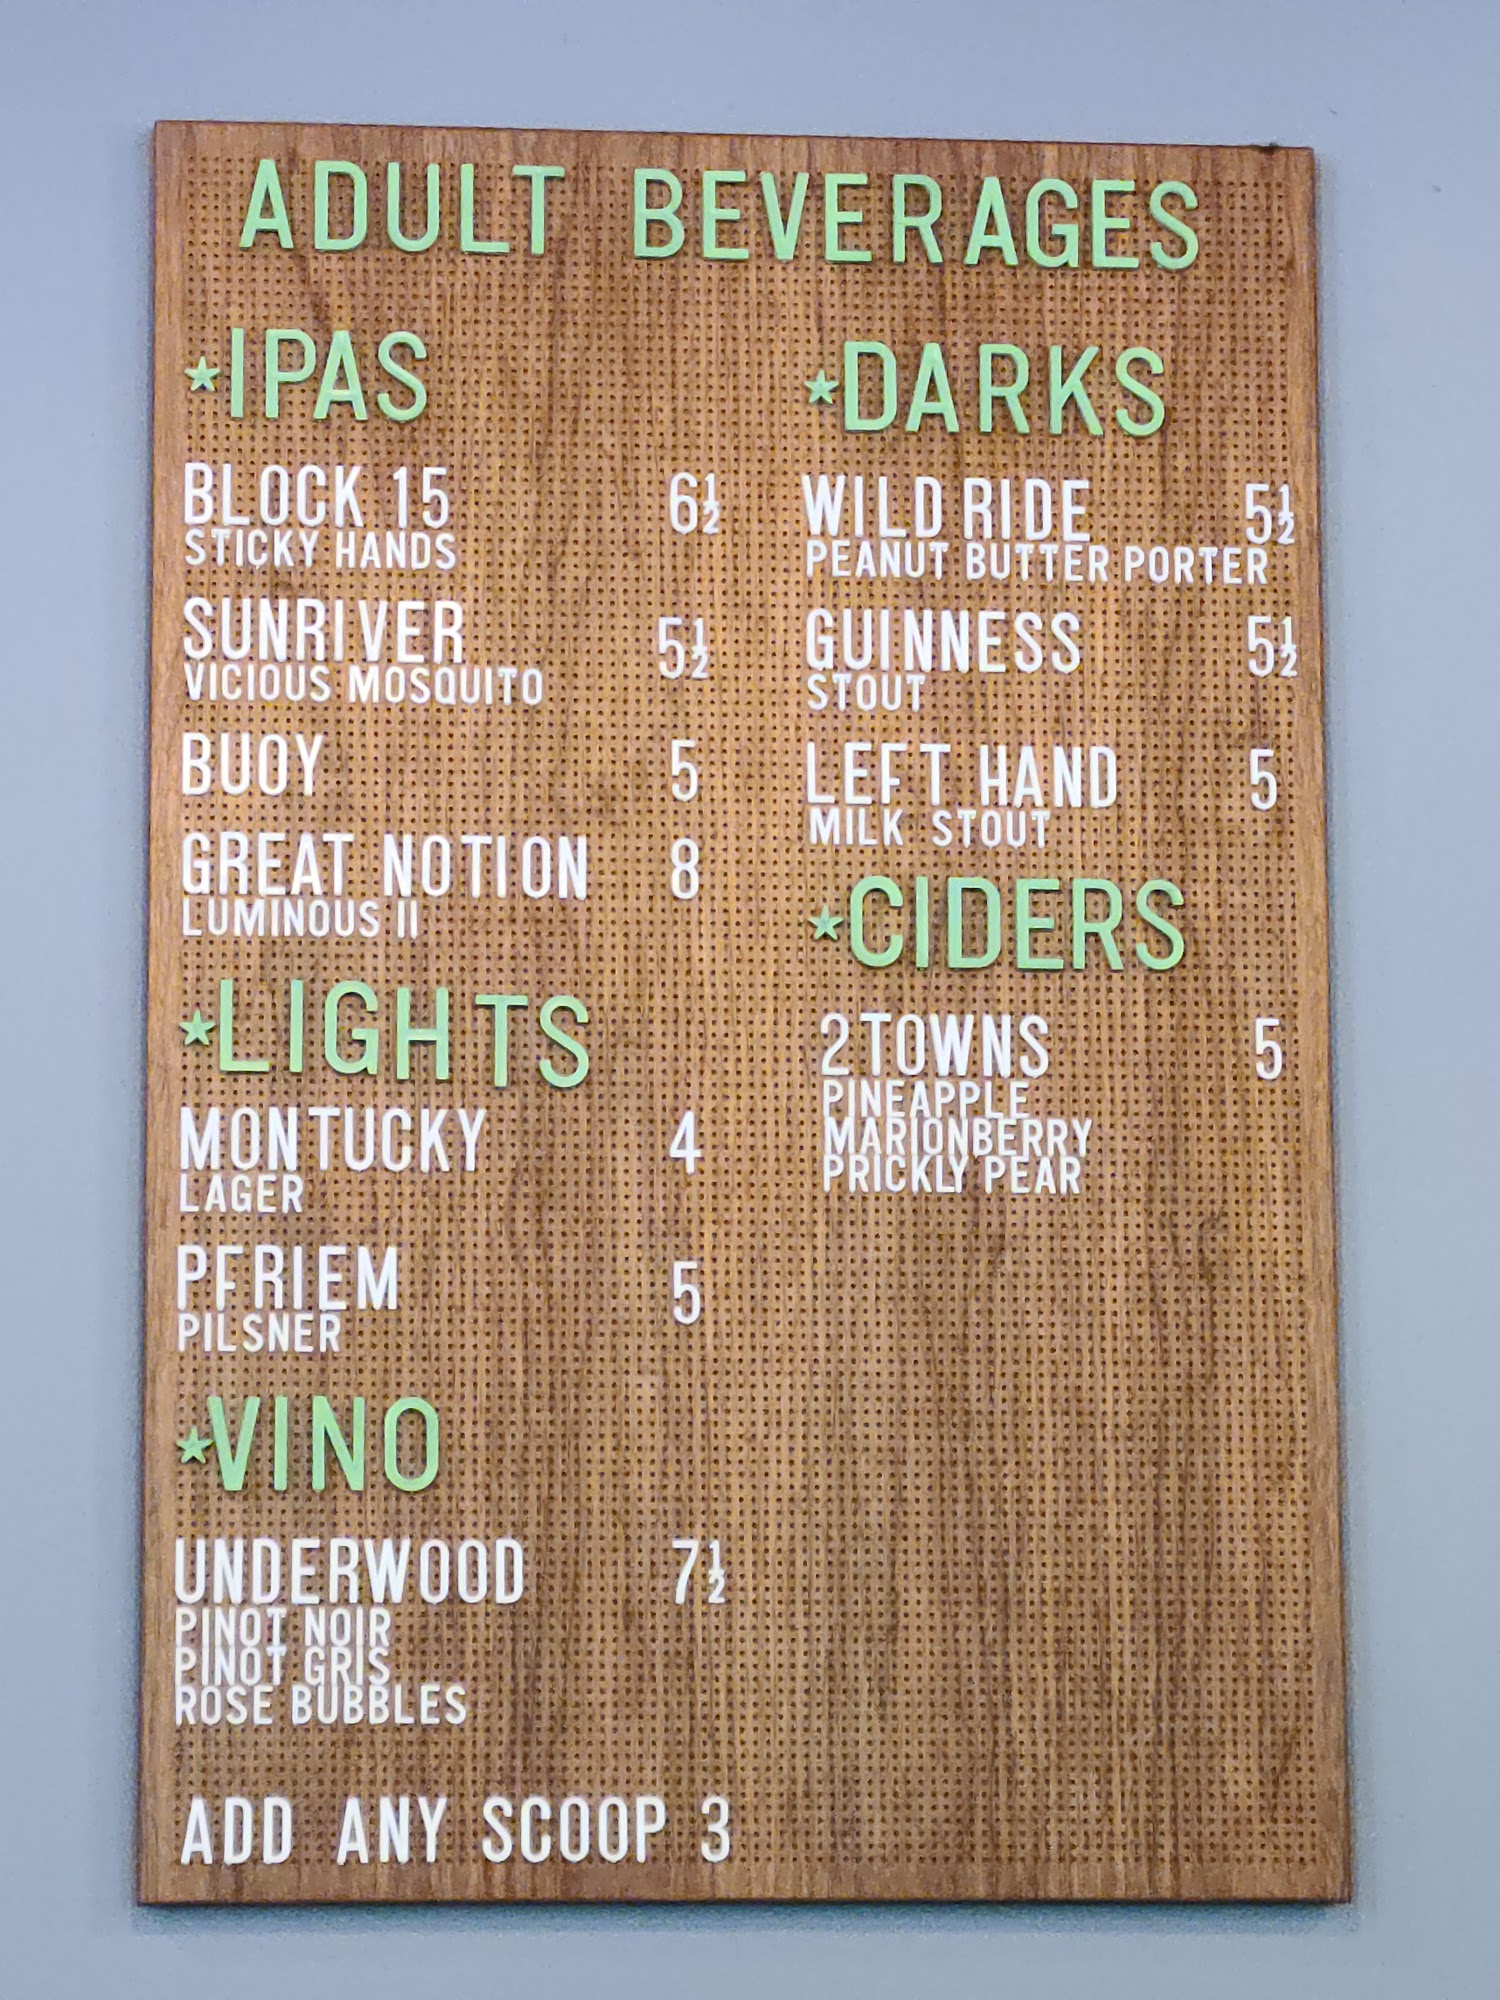 ADULT BEVERAGES
★IPAS
BLOCK 15 6½
STICKY HANDS
SUNRIVER 5½
VICIOUS MOSQUITO
BUOY 5
GREAT NOTION 8
LUMINOUS II
★LIGHTS
MONTUCKY 4
LAGER
PFRIEM 5
PILSNER
★VINO
UNDERWOOD 7½
PINOT NOIR
PINOT GRIS
ROSE BUBBLES
ADD ANY SCOOP 3
★DARKS
WILD RIDE 5½
PEANUT BUTTER PORTER
GUINNESS 5½
STOUT
LEFT HAND 5
MILK STOUT
★CIDERS
2 TOWNS 5
PINEAPPLE
MARIONBERRY
PRICKLY PEAR